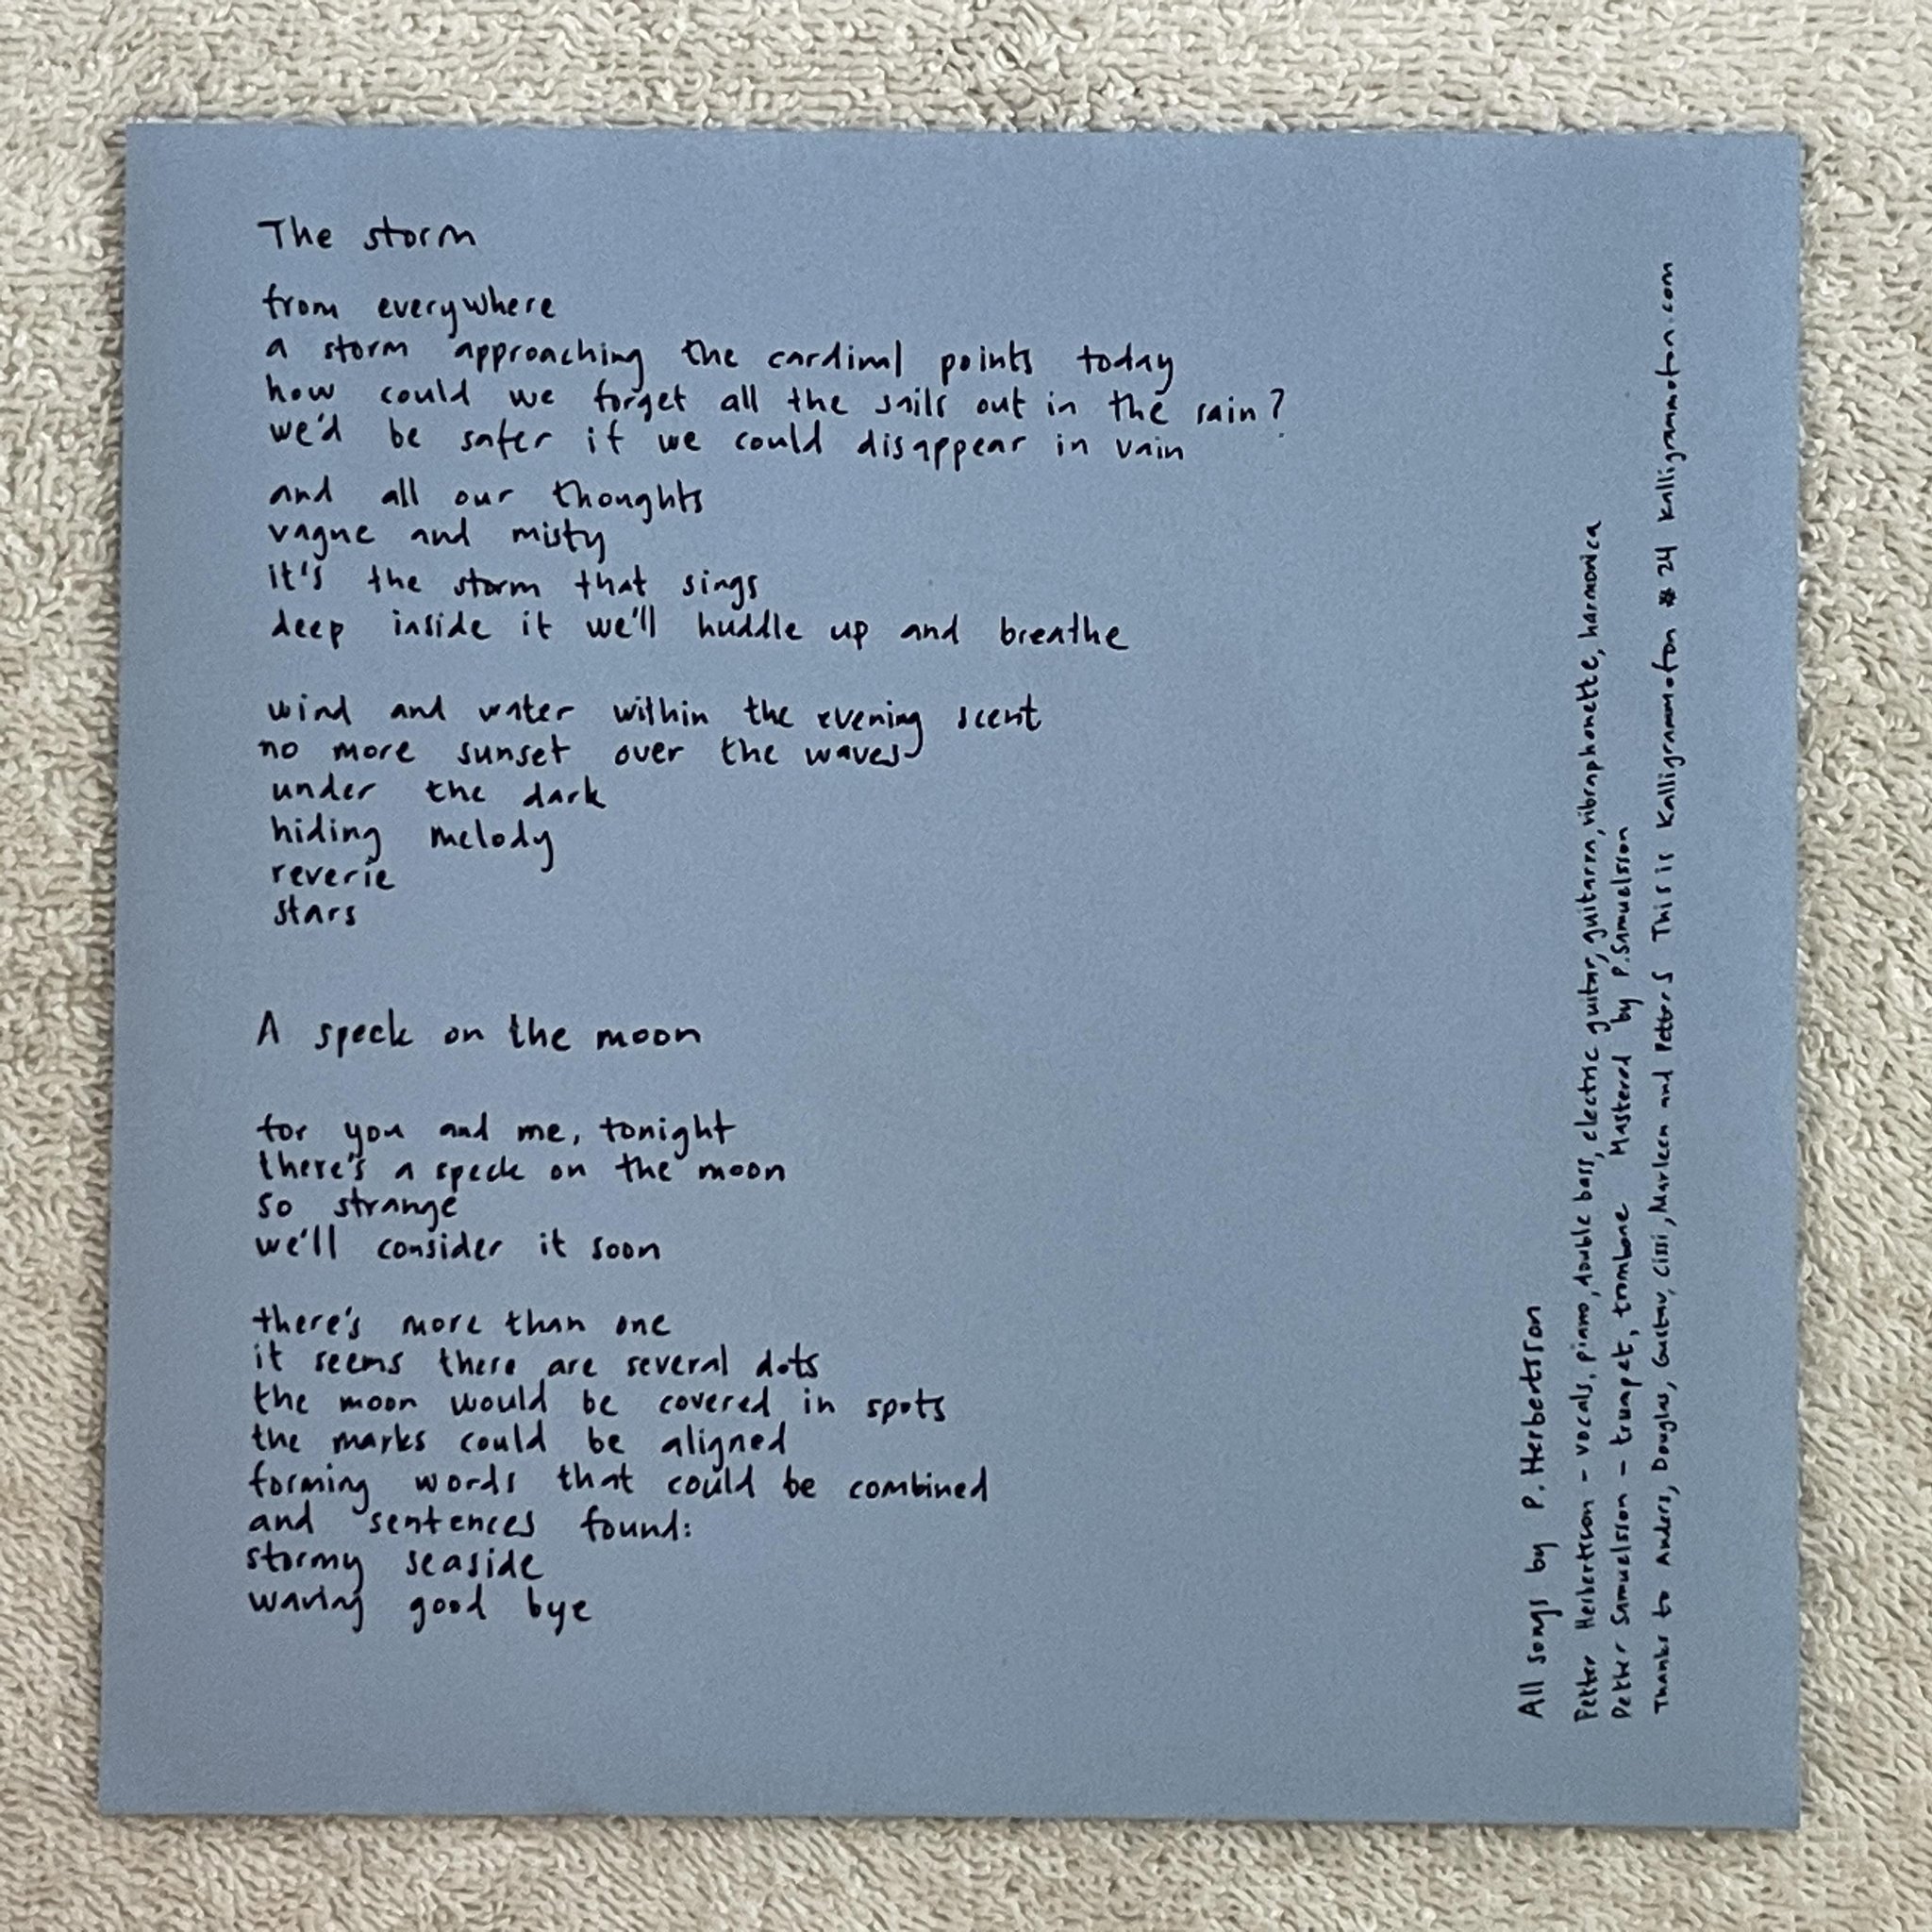 The storm
from everywhere
a storm approaching the cardinal points today
how could we forget all the sails out in the rain?
we'd be safer if we could disappear in vain
and all our thoughts
vague and misty
it's the storm that sings
deep inside it we'll huddle up and breathe
wind and water within the evening scent
no more sunset over the waves
under the dark
hiding melody
reverie
stars
A speck on the moon
for you and me, tonight
there's a speck on the moon
so strange
we'll consider it soon
there's more than one
it seems there are several dots
the moon would be covered in spots
the marks could be aligned
forming words that could be combined
and sentences found:
stormy seaside
waving good bye
All songs by P. Herbertsson
Petter Herbertsson - vocals, piano, double bass, electric guitar, guitarra, vibraphonette, harmonica
Petter Samuelsson - trumpet, trombone Mastered by P. Samuelsson
Thanks to Anders, Douglas, Gustav, Cissi, Marleen and Petter S This is Kalligrammofon # 24 kalligrammofon.com